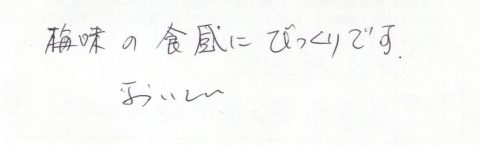 梅味の食感にびっくりです.
おいしい